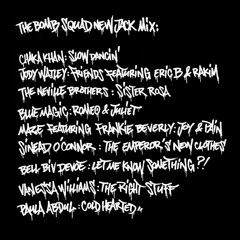 THE BOMB SQUAD NEW JACK MIX:
CHAKA KHAN: SLOW DANCIN'
JODY WATLEY: FRIENDS FEATURING ERIC B & RAKIM
THE NEVILLE BROTHERS: SISTER ROSA
BLUE MAGIC: ROMEO & JULIET
MAZE FEATURING FRANKIE BEVERLY: JOY & PAIN
SINEAD O'CONNOR: THE EMPEROR'S NEW CLOTHES
BELL BIV DEVOE: LET ME KNOW SOMETHING?!
VANESSA WILLIAMS: THE RIGHT STUFF
PAULA ABDUL: COLD HEARTED